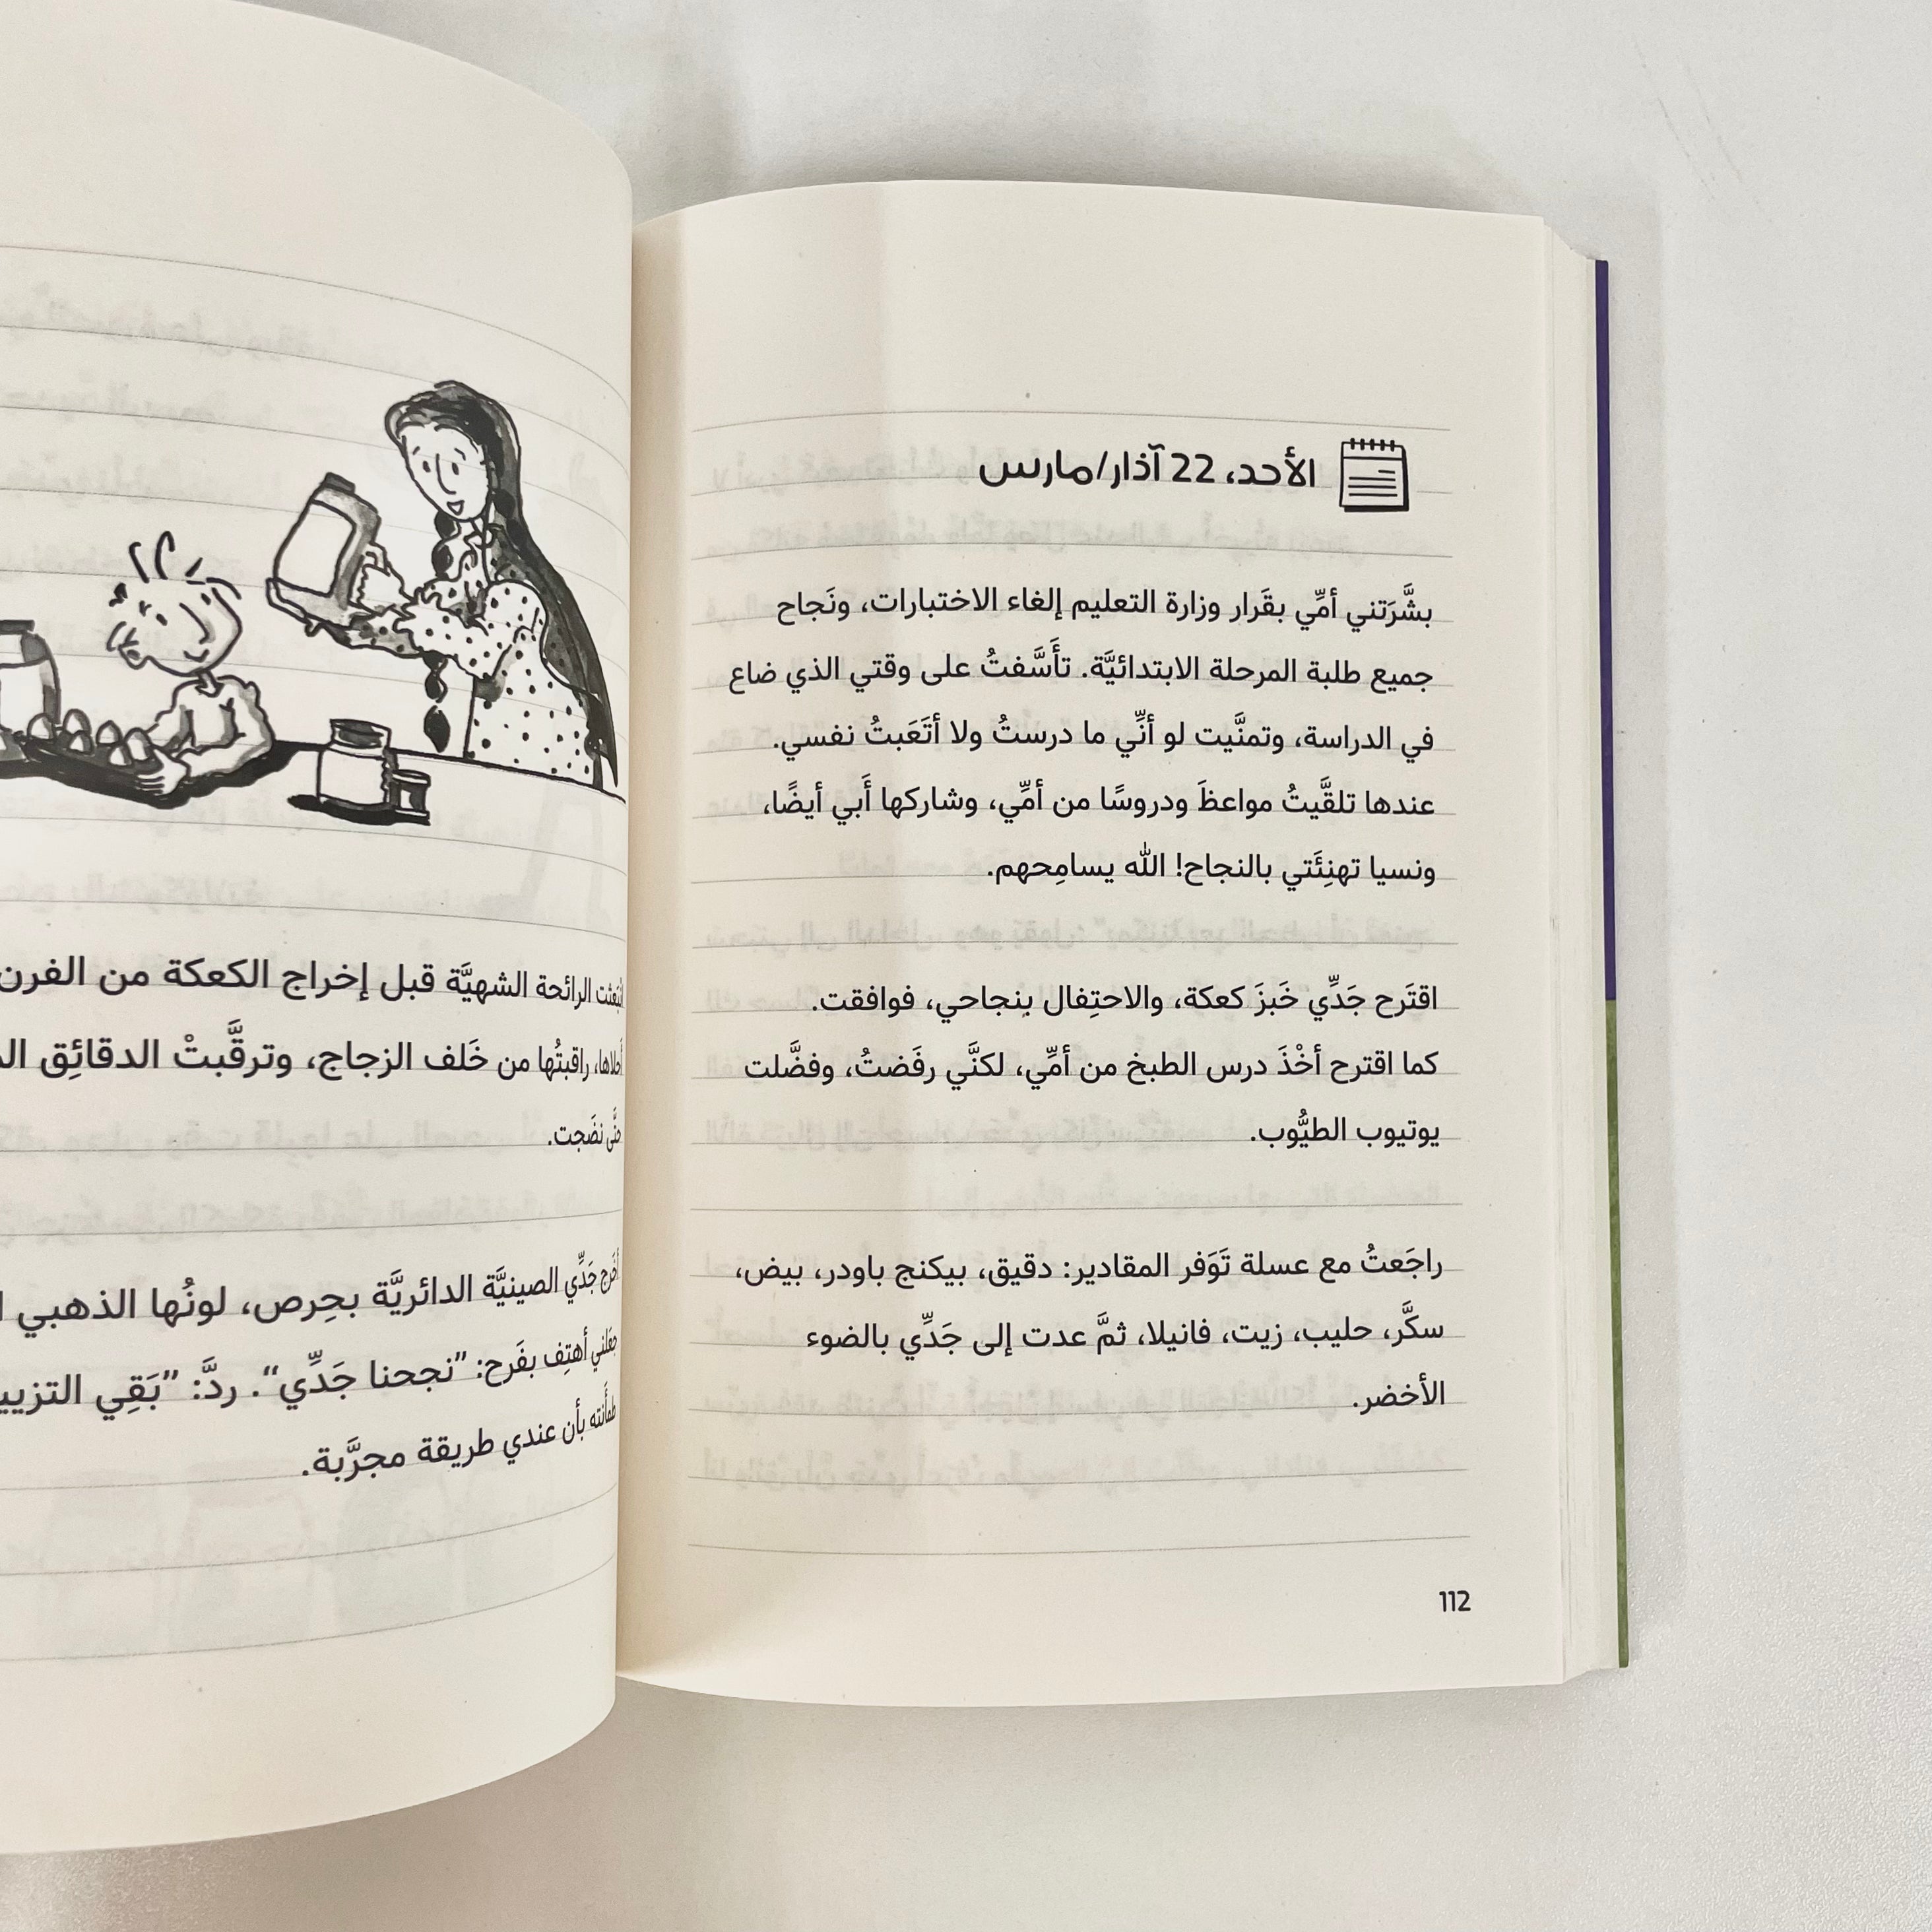 الأحد، 22 آذار/مارس
بشَّرَتني أمِّي بقَرار وزارة التعليم إلغاء الاختبارات، ونَجاح
جميع طلبة المرحلة الابتدائيَّة. تأَسَّفتُ على وقتي الذي ضاع
في الدراسة، وتمنَّيت لو أنِّي ما درستُ ولا أتَعَبتُ نفسي.
عندها تلقَّيتُ مواعظَ ودروسًا من أمِّي، وشاركها أَبي أيضًا،
ونسيا تهنِئَتي بالنجاح! الله يسامِحهم.
اقتَرح جَدِّي خَبزَ كعكة، والاحتِفال بِنجاحي، فوافقت.
كما اقترح أخْذَ درس الطبخ من أمِّي، لكنَّي رفَضتُ، وفضَّلت
يوتيوب الطيُّوب.
راجَعتُ مع عسلة تَوَفر المقادير: دقيق، بيكنج باودر، بيض،
سكَّر، حليب، زيت، فانيلا، ثمَّ عدت إلى جَدِّي بالضوء
الأخضر.
112
الرائحة الشهيَّة قبل إخراج الكعكة من الفرن
راقبتُها من خَلف الزجاج، وترقَّبتْ الدقائِق
حتَّى نضَجت.
أخرج جَدِّي الصينيَّة الدائريَّة بحِرص، لونُها الذهبي
جعَلني أهتِف بفَرح: ”نجحنا جَدِّي“. ردَّ: ”بَقِي
طمأَنته بأن عندي طريقة مجرَّبة.